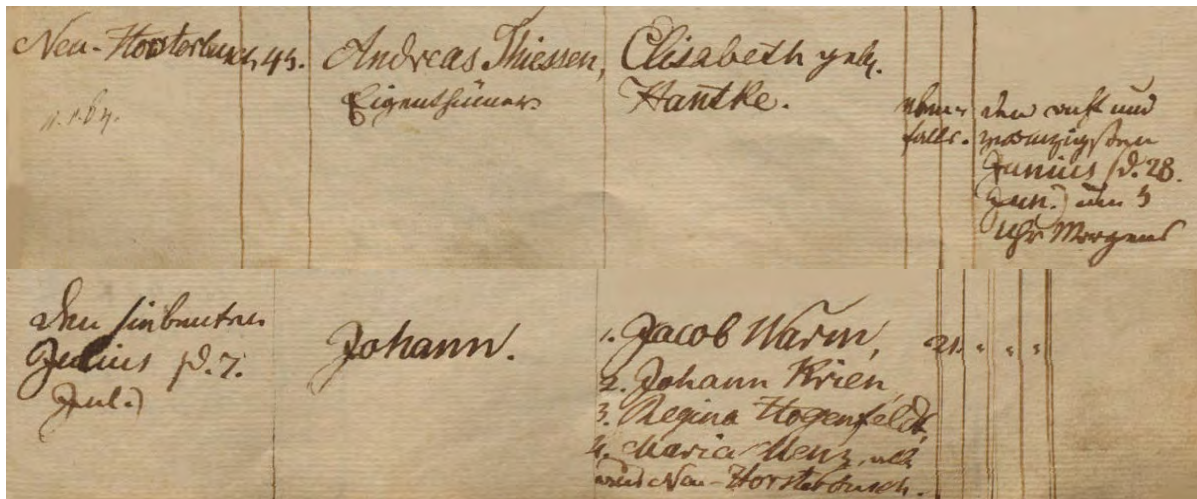 Neu-Horsterbusch 45.
Andreas Thiessen,
Eigenthümer
Elisabeth geb.
Hantke.
eben-
falls.
den acht und
zwanzigsten
Junius (d. 28.
Jun.) um 3
Uhr Morgens
den siebenten
Julius (d. 7.
Jul.)
Johann.
1. Jacob Warm,
2. Johann Krien,
3. Regina Hogenfeldt,
4. Maria Menz, alle
aus Neu-Horsterbusch.
21. " " "